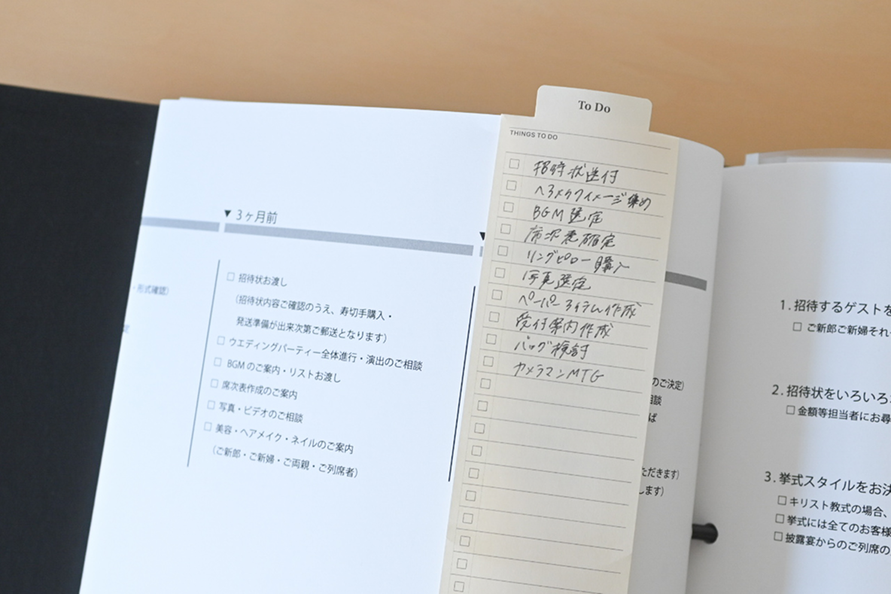 To Do
THINGS TO DO
招待状送付
ヘアメイクイメージ集め
BGM選定
席次表確定
リングピロー購入
写真選定
ペーパーアイテム作成
受付案内作成
バッグ検討
カメラマンMTG
▼3ヶ月前
□ 招待状お渡し
(招待状内容ご確認のうえ、寿切手購入・
発送準備が出来次第ご郵送となります)
□ ウエディングパーティー全体進行・演出のご相談
□ BGMのご案内・リストお渡し
□ 席次表作成のご案内
□ 写真・ビデオのご相談
□ 美容・ヘアメイク・ネイルのご案内
(ご新郎・ご新婦・ご両親・ご列席者)
・形式確認)
定
のご決定)
相談
ば
ただきます)
します)
1. 招待するゲストを
□ ご新郎ご新婦それ
2. 招待状をいろいろ
□ 金額等担当者にお尋
3. 挙式スタイルをお決
□ キリスト教式の場合、
□ 挙式には全てのお客様
□ 披露宴からのご列席の